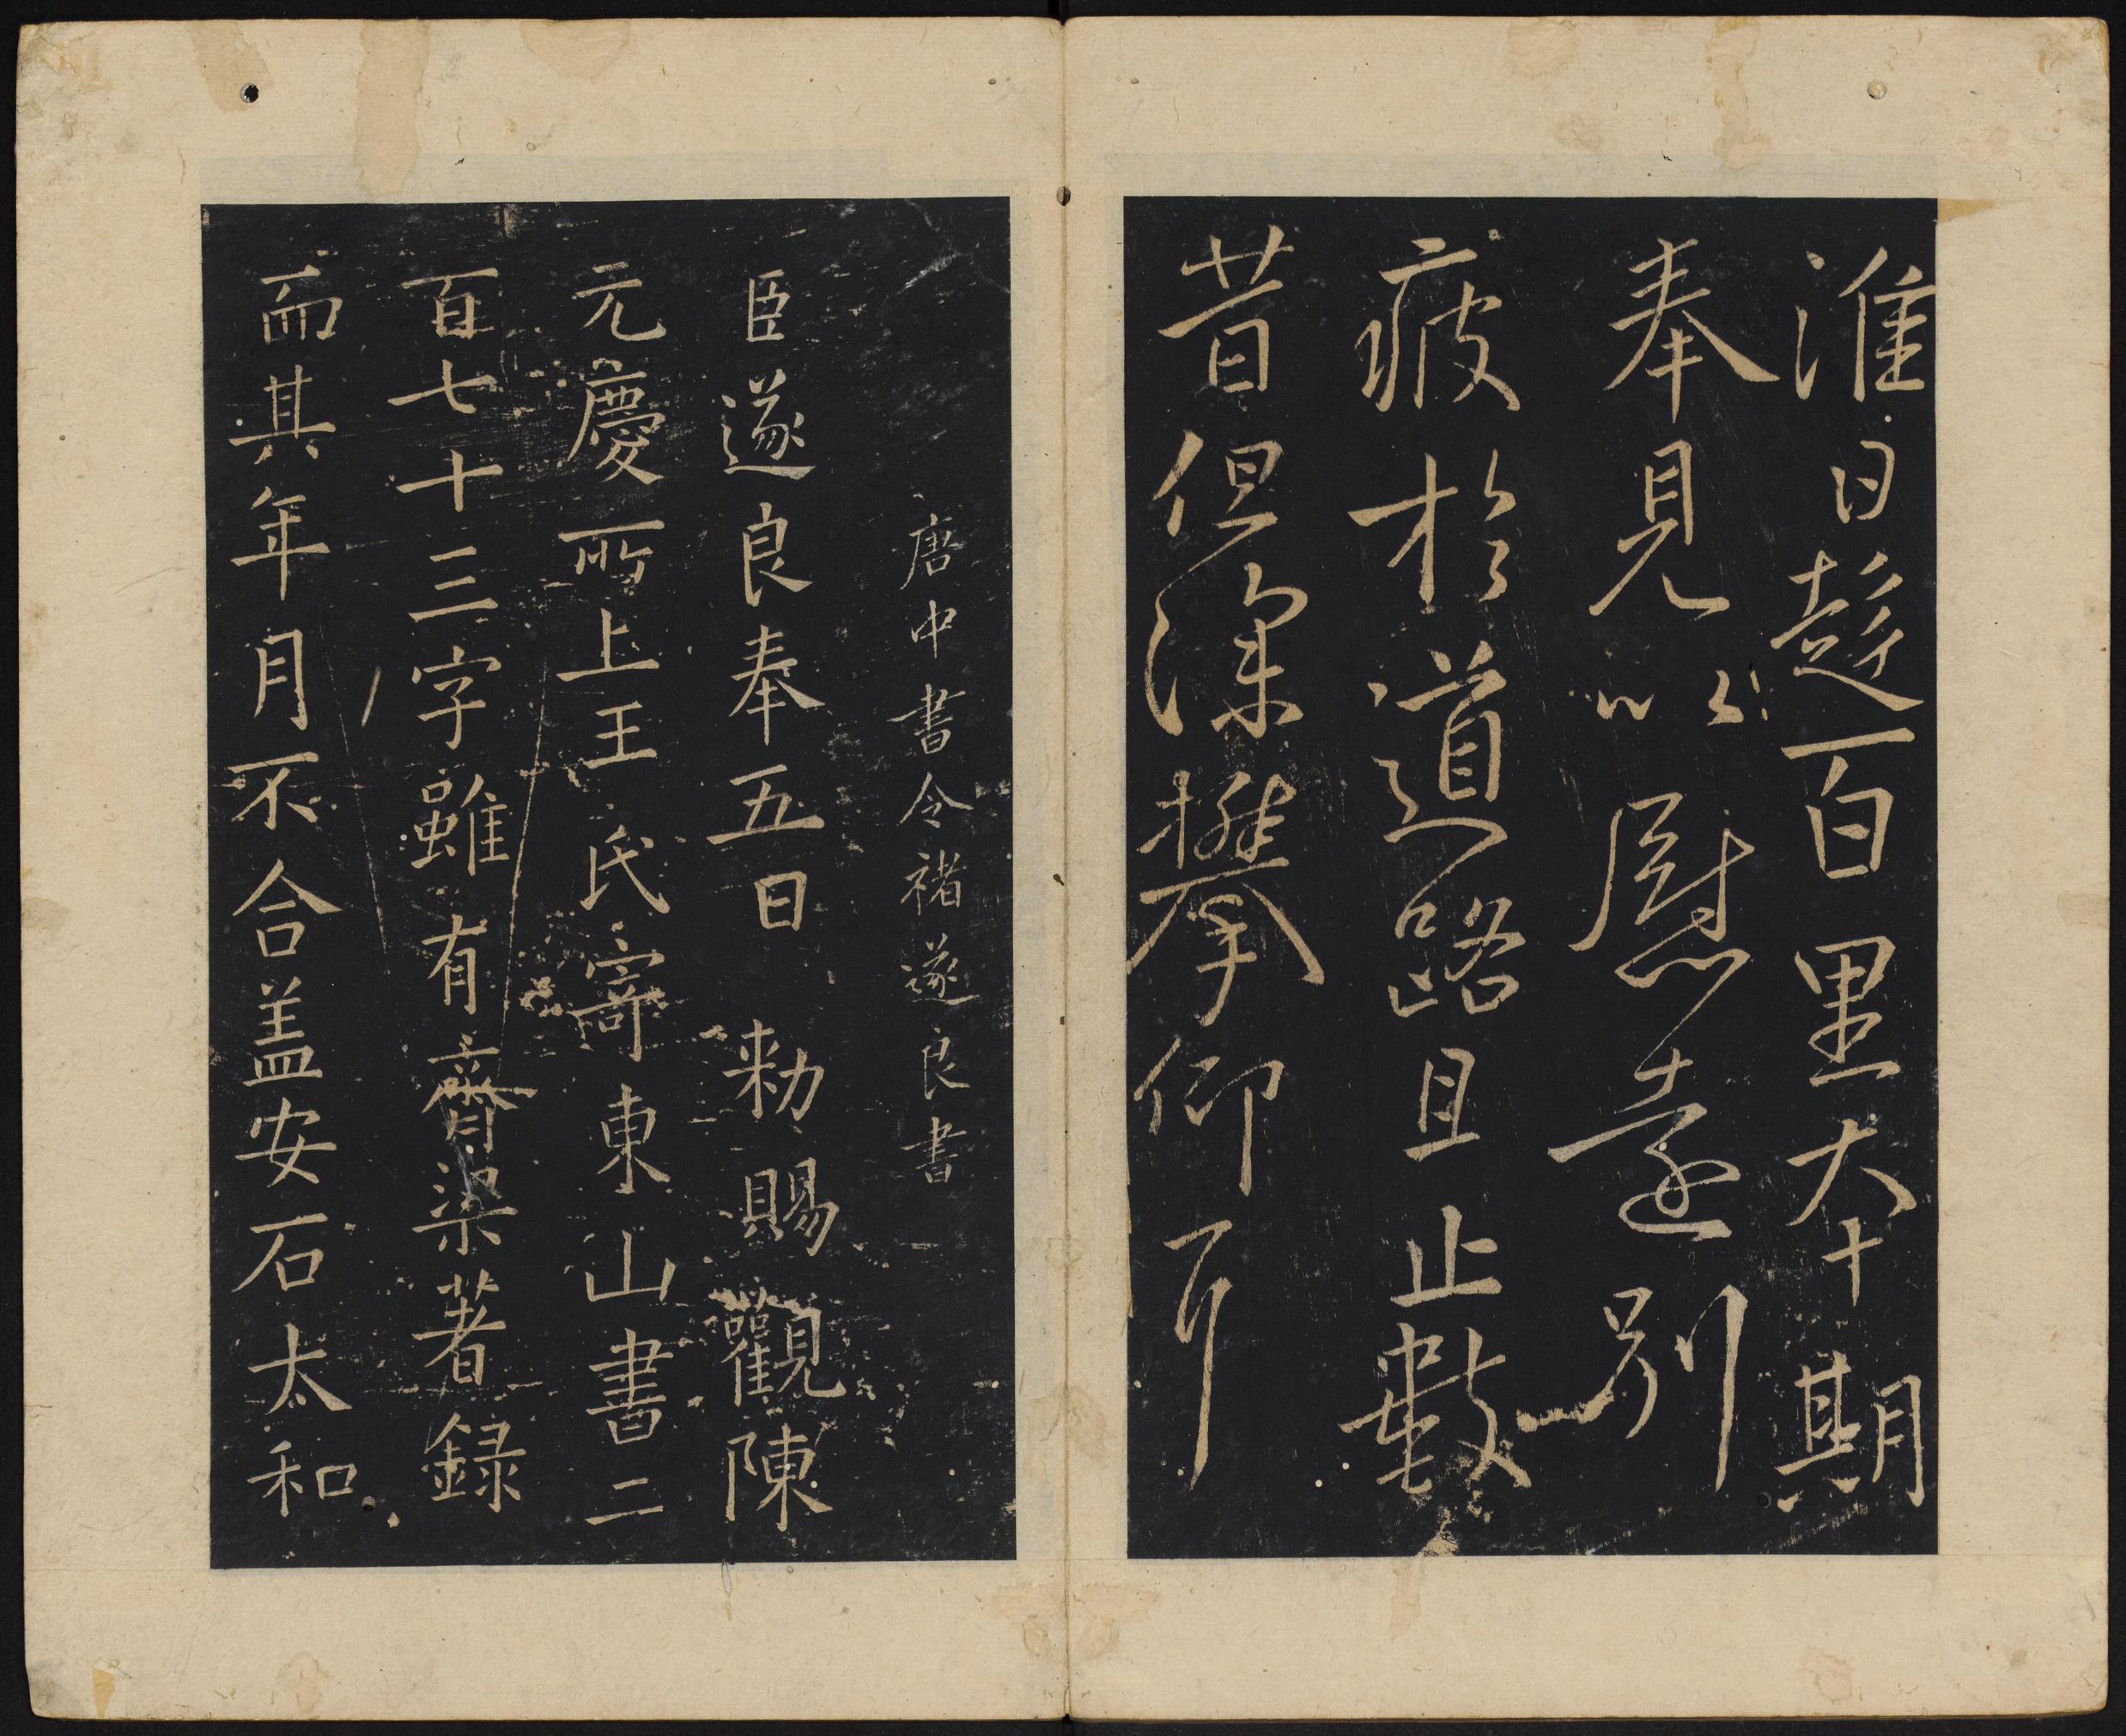 淮日趍百里大期
奉見以慰遠別
疲於道路且止數
昔但深攀仰耳
唐中書令褚遂良書
臣遂良奉五日敕賜觀陳
元慶所上王氏寄東山書二
百七十三字雖有齋梁著録
而其年月不合盖安石太和